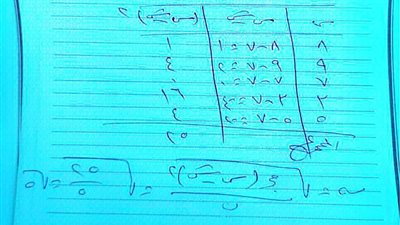 س | س - س̄ | (س - س̄)²
٨ | ٨ - ٧ = ١ | ١
٩ | ٩ - ٧ = ٢ | ٤
٧ | ٧ - ٧ = ٠ | ٠
٣ | ٣ - ٧ = -٤ | ١٦
٥ | ٥ - ٧ = -٢ | ٤
المجموع | ٢٥
√(مج (س - س̄)² / ن) = √(٢٥ / ٥) = √٥